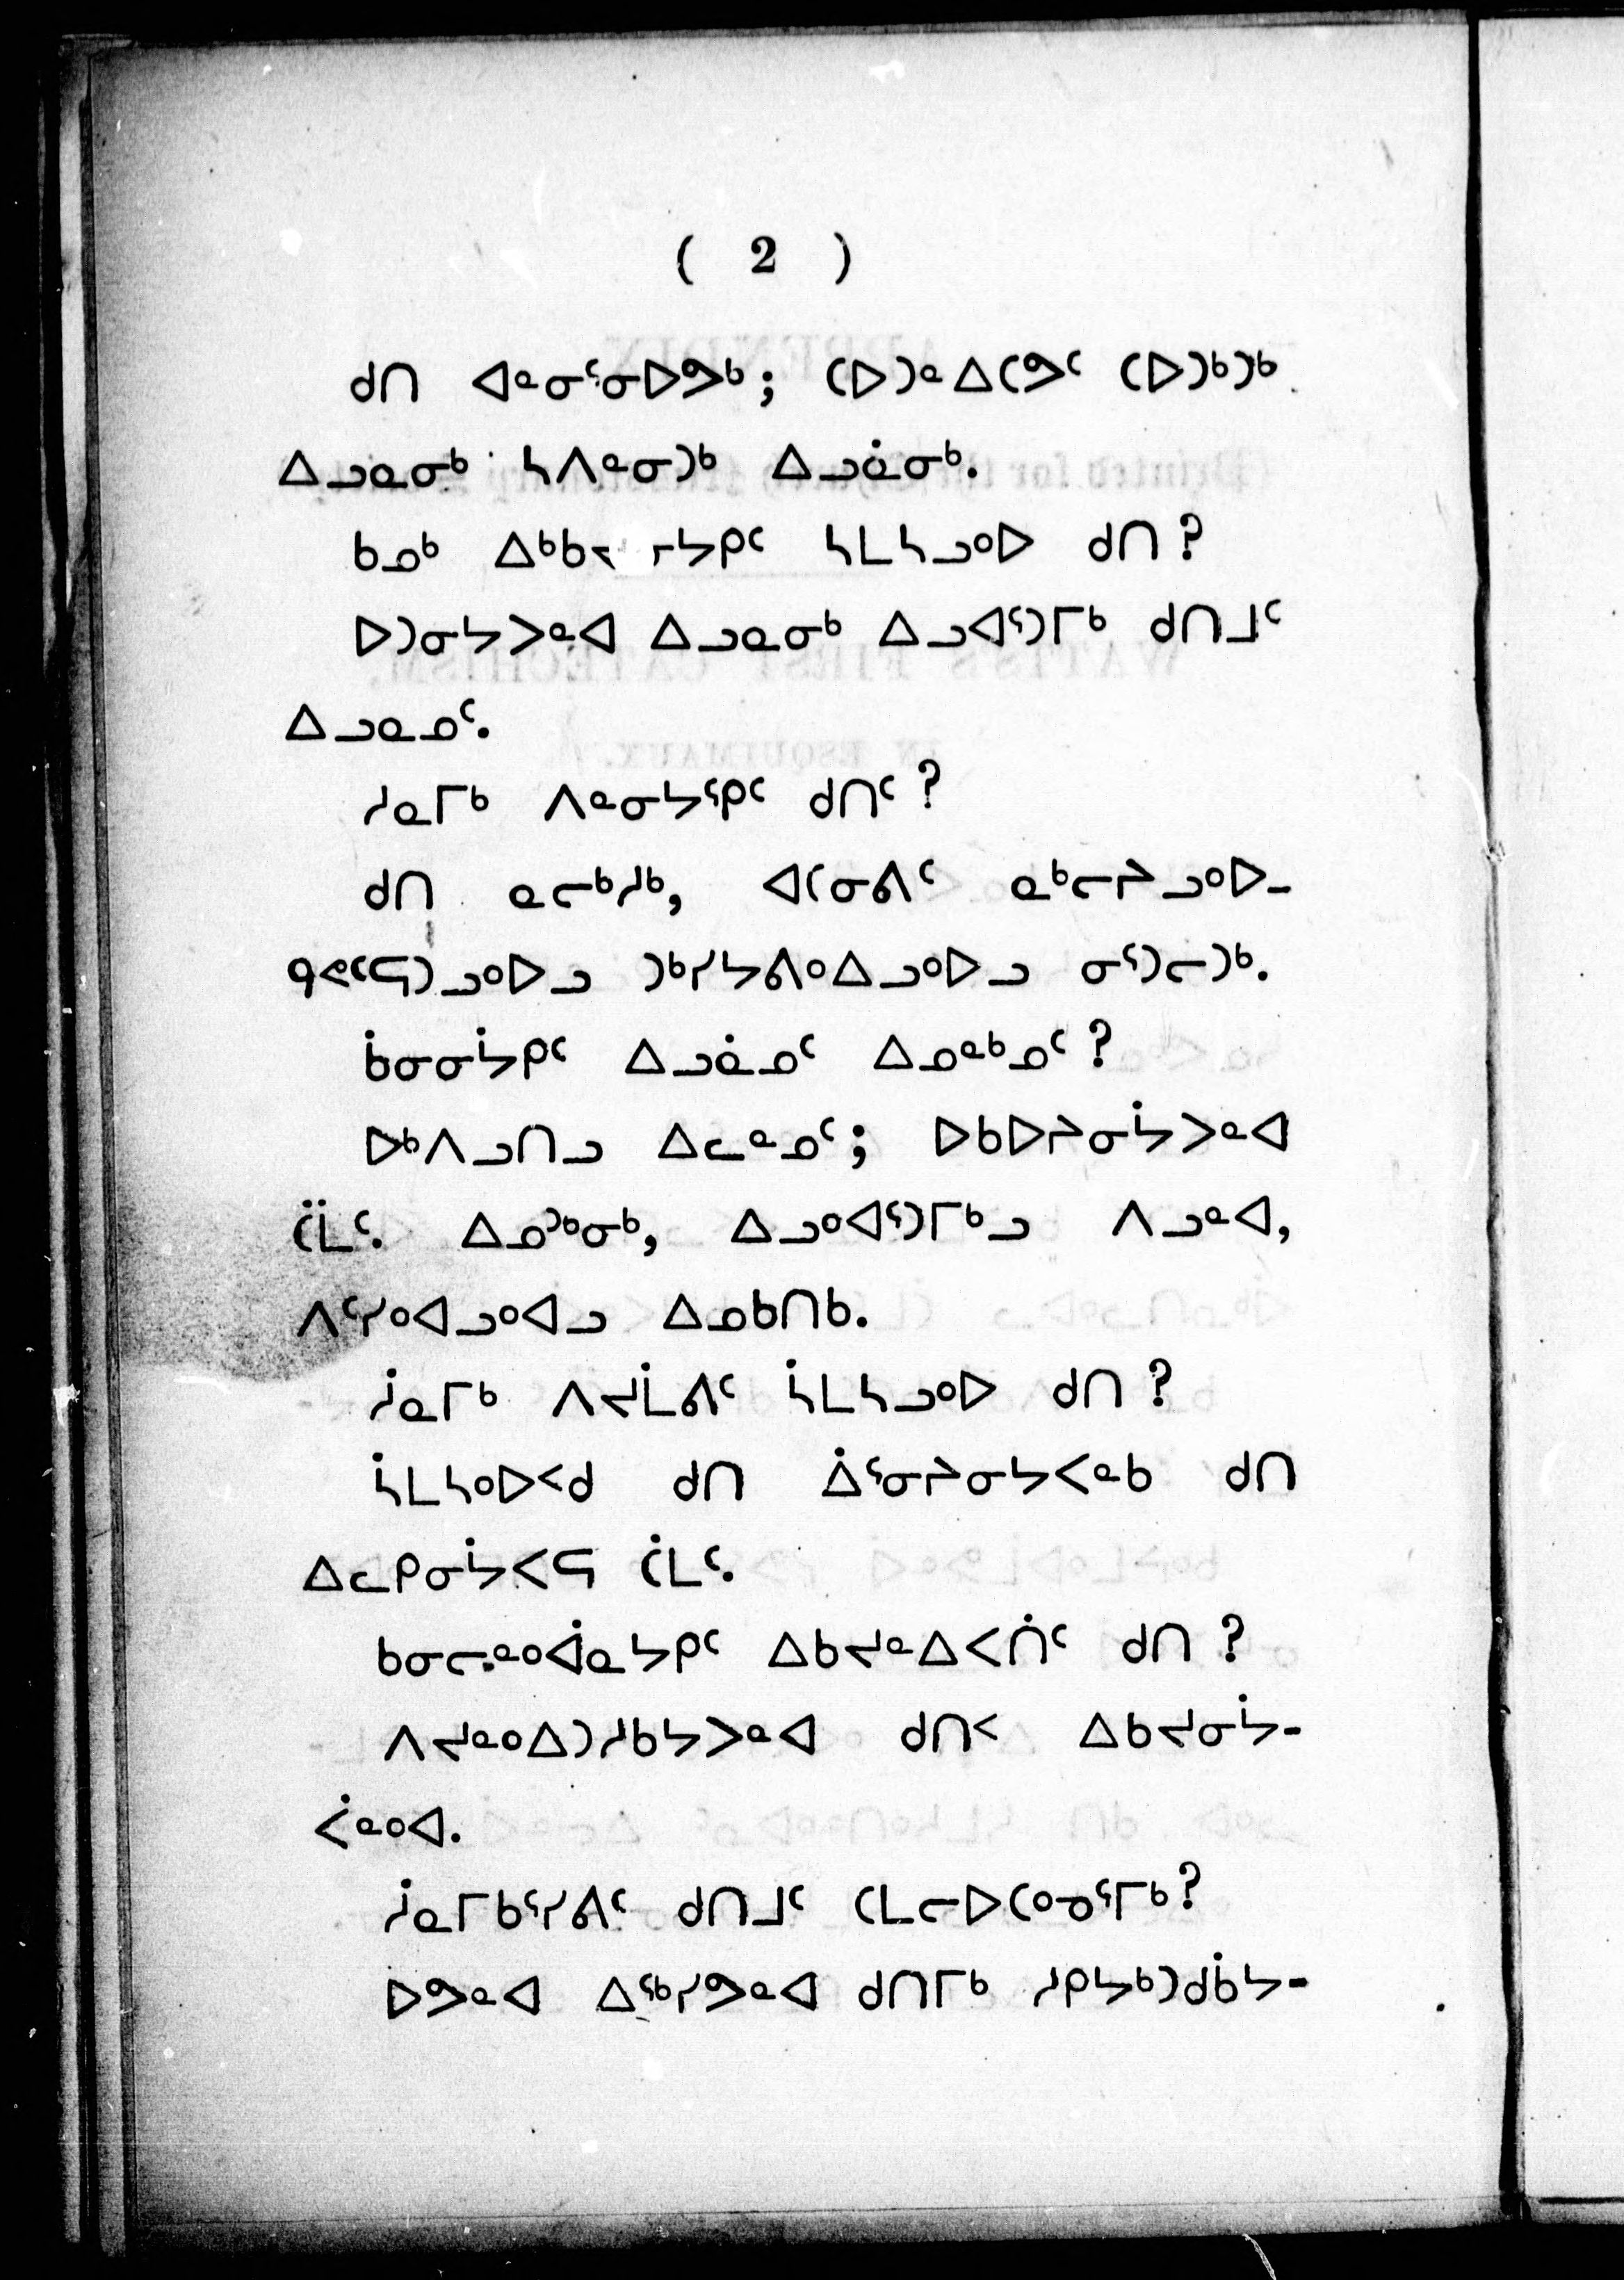 ( 2 )
ᑯᑎ ᐊᓐᓂᕐᓂᐅᕗᒃ; ᑕᐅᑐᓐᐃᑕᕗᑦ ᑕᐅᑐᒃᑐᒃ
ᐃᓗᓇᓂᒃ ᓴᐱᓐᓂᑐᒃ ᐃᓗᓈᓂᒃ.
ᑲᓄᒃ ᓴᒪᓴᓗᐤᐅ ᑯᑎ?
ᐅᑐᓂᔭᐳᓐᐊ ᐃᓗᓇᓂᒃ ᐃᓗᐊᕐᑐᒥᒃ ᑯᑎᒧᑦ
ᐃᓗᓇᓄᑦ.
ᓱᓇᒥᒃ ᐱᓐᓂᔭᕐᑭᑦ ᑯᑎᑦ?
ᑯᑎ ᓇᓕᒃᓱᒃ, ᐊᑕᓂᕕᑦ ᓇᒃᓕᔨᓗᐤᐅ-
ᑫᕙᑦᕋᑐᓗᐤᐅᓗ ᑐᒃᓯᔭᕕᐤᐃᓗᐤᐅᓗ ᓂᕐᑐᓕᑐᒃ.
ᑳᓂᓂᔮᑭᑦ ᐃᓗᓈᓄᑦ ᐃᓄᓐᒃᓄᑦ?
ᐅᒃᐱᓗᑎᓗ ᐃᓚᓐᓄᑦ; ᐅᑲᐅᔨᓂᔮᐳᓐᐊ
ᑖᒫᑦ. ᐃᓄᑐᓐᒃᓂᒃ, ᐃᓗᐤᐊᕐᑐᒥᒃᓗ ᐱᓗᓐᐊ,
ᐱᕐᓯᐤᐊᓗᐤᐊᓗ ᐃᓄᑲᑎᑲ.
ᓲᓇᒥᒃ ᐱᔪᒫᕕᑦ ᓵᒪᓴᓗᐤᐅ ᑯᑎ?
ᓵᒪᓴᐤᐅᑉᑯ ᑯᑎ ᐄᕐᓂᔨᓂᔭᐸᓐᑲ ᑯᑎ
ᐃᓚᑭᓂᔮᐸᕋ ᑖᒪᑦ.
ᑲᓂᓕᓐᐤᐋᓇᔭᑭᑦ ᐃᑲᔪᓐᐃᐸᑏᑦ ᑯᑎ?
ᐱᔪᓐᐤᐃᑐᓱᑲᔭᐳᓐᐊ ᑯᑎᑉ ᐃᑲᔪᓂᔮ-
ᐹᓐᐤᐊ.
ᓲᓇᒥᑲᕐᓯᕕᑦ ᑯᑎᒧᑦ ᑕᒪᓕᐅᑕᐤᓅᕐᒥᒃ?
ᐅᕗᓐᐊ ᐃᕐᒃᓯᕗᓐᐊ ᑯᑎᒥᒃ ᓱᑭᔭᒃᑐᑯᑳᔭ-